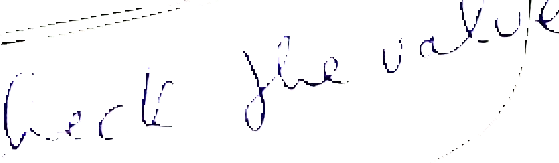 check the value